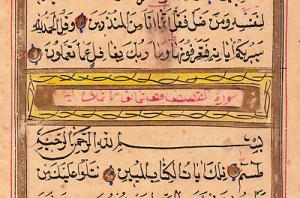 لنفسه ومن ضل فقل انما انا من المنذرين وقل الحمد لله
سيريكم اياته فتعرفونها وما ربك بغافل عما تعملون
سورة القصص وهي ثمان وثمانون اية
بسم الله الرحمن الرحيم
طسم تلك ايات الكتاب المبين نتلوا عليك من